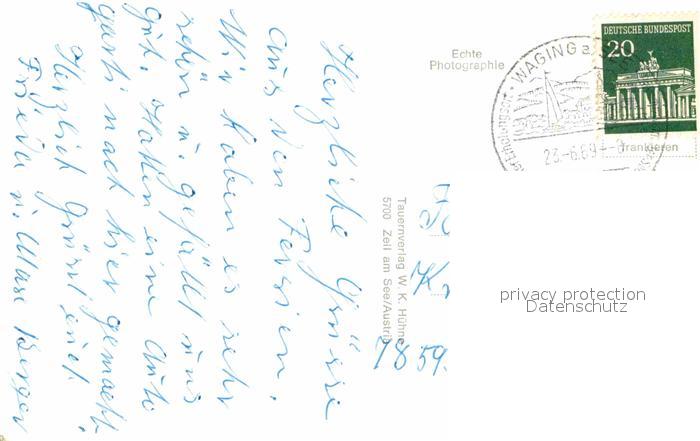 Herzliche Grüsse
aus den Ferien.
Wir haben es sehr
schön u. gefällt uns
gut. Hatten eine Auto
nach hier gemacht.
Herzlich grüsst euch
Frieda u. Berger
Tauernverlag W. K. Hühne
5700 Zell am See/Austria
7859.
Echte
Photographie
WAGING a.
23.-6.69
DEUTSCHE BUNDESPOST
20
frankieren
privacy protection
Datenschutz